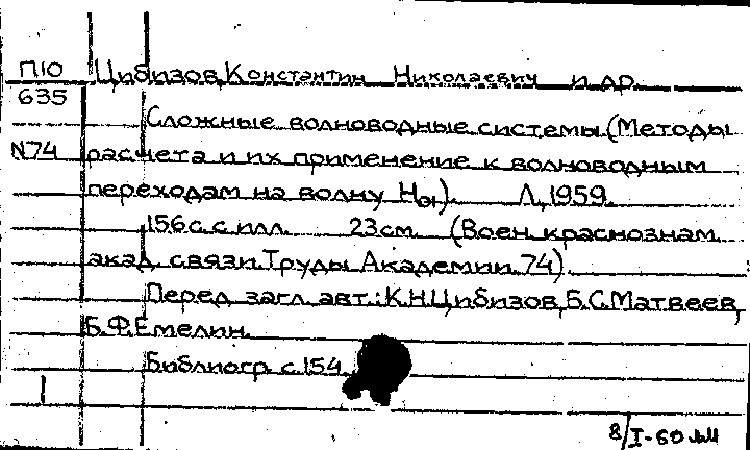 П10 Цибизов, Константин Николаевич и др.
635
Сложные волноводные системы. (Методы
N74 расчета и их применение к волноводным
переходам на волну H₀₁). Л., 1959.
156 с. с илл. 23 см. (Воен. краснознам.
акад. связи. Труды Академии. 74).
Перед загл. авт.: К.Н.Цибизов, Б.С.Матвеев,
Б.Ф.Емелин.
Библиогр. с.154
8/I-60